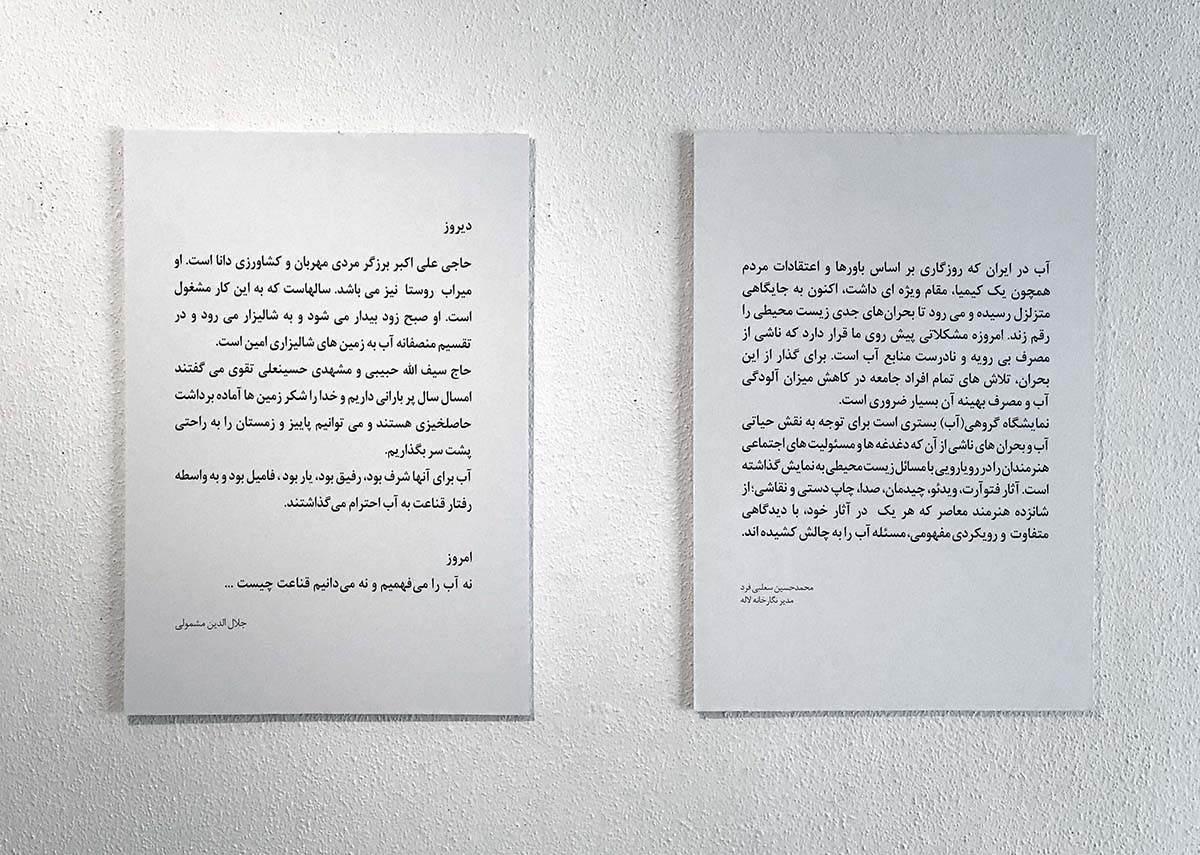 آب در ایران که روزگاری بر اساس باورها و اعتقادات مردم
همچون یک کیمیا، مقام ویژه ای داشت، اکنون به جایگاهی
متزلزل رسیده و می رود تا بحران‌های جدی زیست محیطی را
رقم زند. امروزه مشکلاتی پیش روی ما قرار دارد که ناشی از
مصرف بی رویه و نادرست منابع آب است. برای گذار از این
بحران، تلاش های تمام افراد جامعه در کاهش میزان آلودگی
آب و مصرف بهینه آن بسیار ضروری است.
نمایشگاه گروهی(آب) بستری است برای توجه به نقش حیاتی
آب و بحران های ناشی از آن که دغدغه ها و مسئولیت های اجتماعی
هنرمندان را در رویارویی با مسائل زیست محیطی به نمایش گذاشته
است. آثار فتوآرت، ویدئو، چیدمان، صدا، چاپ دستی و نقاشی؛ از
شانزده هنرمند معاصر که هر یک در آثار خود، با دیدگاهی
متفاوت و رویکردی مفهومی، مسئله آب را به چالش کشیده اند.
محمدحسین سعلبی فرد
مدیر نگارخانه لاله
دیروز
حاجی علی اکبر برزگر مردی مهربان و کشاورزی دانا است. او
میراب روستا نیز می باشد. سالهاست که به این کار مشغول
است. او صبح زود بیدار می شود و به شالیزار می رود و در
تقسیم منصفانه آب به زمین های شالیزاری امین است.
حاج سیف الله حبیبی و مشهدی حسینعلی تقوی می گفتند
امسال سال پر بارانی داریم و خدا را شکر زمین ها آماده برداشت
حاصلخیزی هستند و می توانیم پاییز و زمستان را به راحتی
پشت سر بگذاریم.
آب برای آنها شرف بود، رفیق بود، یار بود ، فامیل بود و به واسطه
رفتار قناعت به آب احترام می‌گذاشتند.
امروز
نه آب را می‌فهمیم و نه می‌دانیم قناعت چیست ...
جلال الدین مشمولی